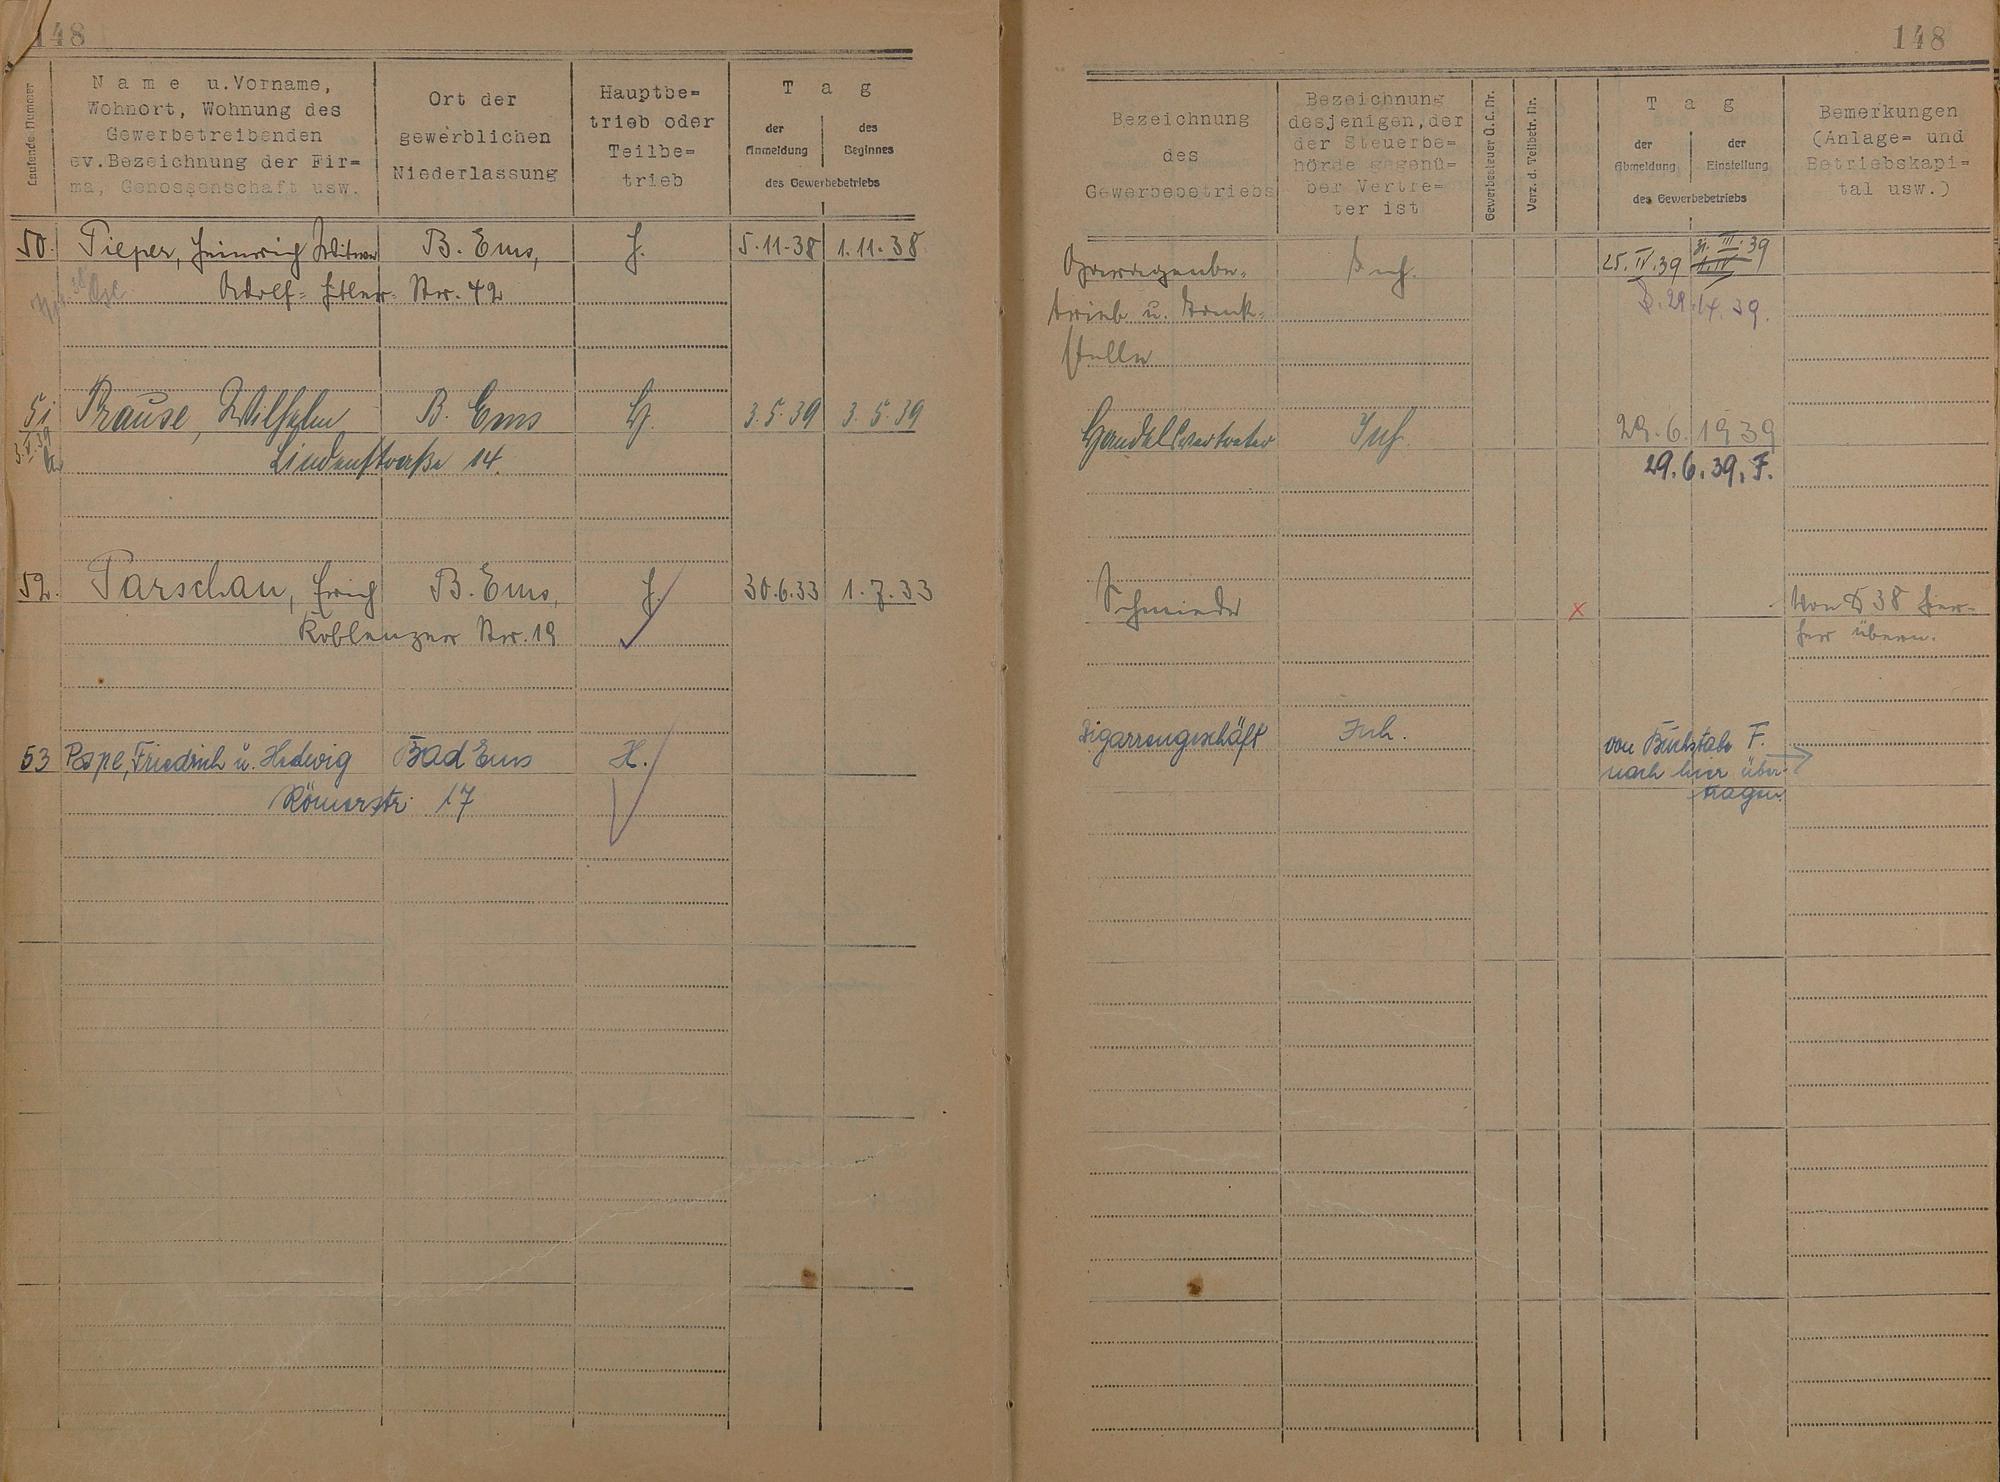 148
Laufende Nummer
Name u. Vorname,
Wohnort, Wohnung des
Gewerbetreibenden
ev. Bezeichnung der Fir=
ma, Genossenschaft usw.
Ort der
gewerblichen
Niederlassung
Hauptbe=
trieb oder
Teilbe=
trieb
Tag
der
Anmeldung
des
Beginnes
des Gewerbebetriebs
50. Pieper, Heinrich Witwe B. Ems, H. 5.11.38 1.11.38
Adolf-Hitler-Str. 42
51 Prause, Wilhelm B. Ems H. 3.5.39 3.5.39
3.V.39
Lindenstraße 14.
52. Parschau, Erich B. Ems, H. 30.6.33 1.7.33
Koblenzer Str. 19
53 Pape, Friedrich u. Hedwig Bad Ems H.
Römerstr. 17
148
Bezeichnung
des
Gewerbebetriebs
Bezeichnung
desjenigen, der
der Steuerbe=
hörde gegenü=
ber Vertre=
ter ist
Gewerbesteuer d. L. Nr.
Verz. d. Teilbetr. Nr.
Tag
der
Abmeldung
der
Einstellung
des Gewerbebetriebs
Bemerkungen
(Anlage= und
Betriebskapi=
tal usw.)
Garagenbe- Inh. 25.IV.39 31.III.39
trieb u. Tank- 29.14.39.
stelle
Handelsvertreter Inh. 29.6.1939
29.6.39. F.
Schmiede x Von S 38 hier-
her übern.
Zigarrengeschäft Inh. von Buchstabe F.
nach hier über-
tragen